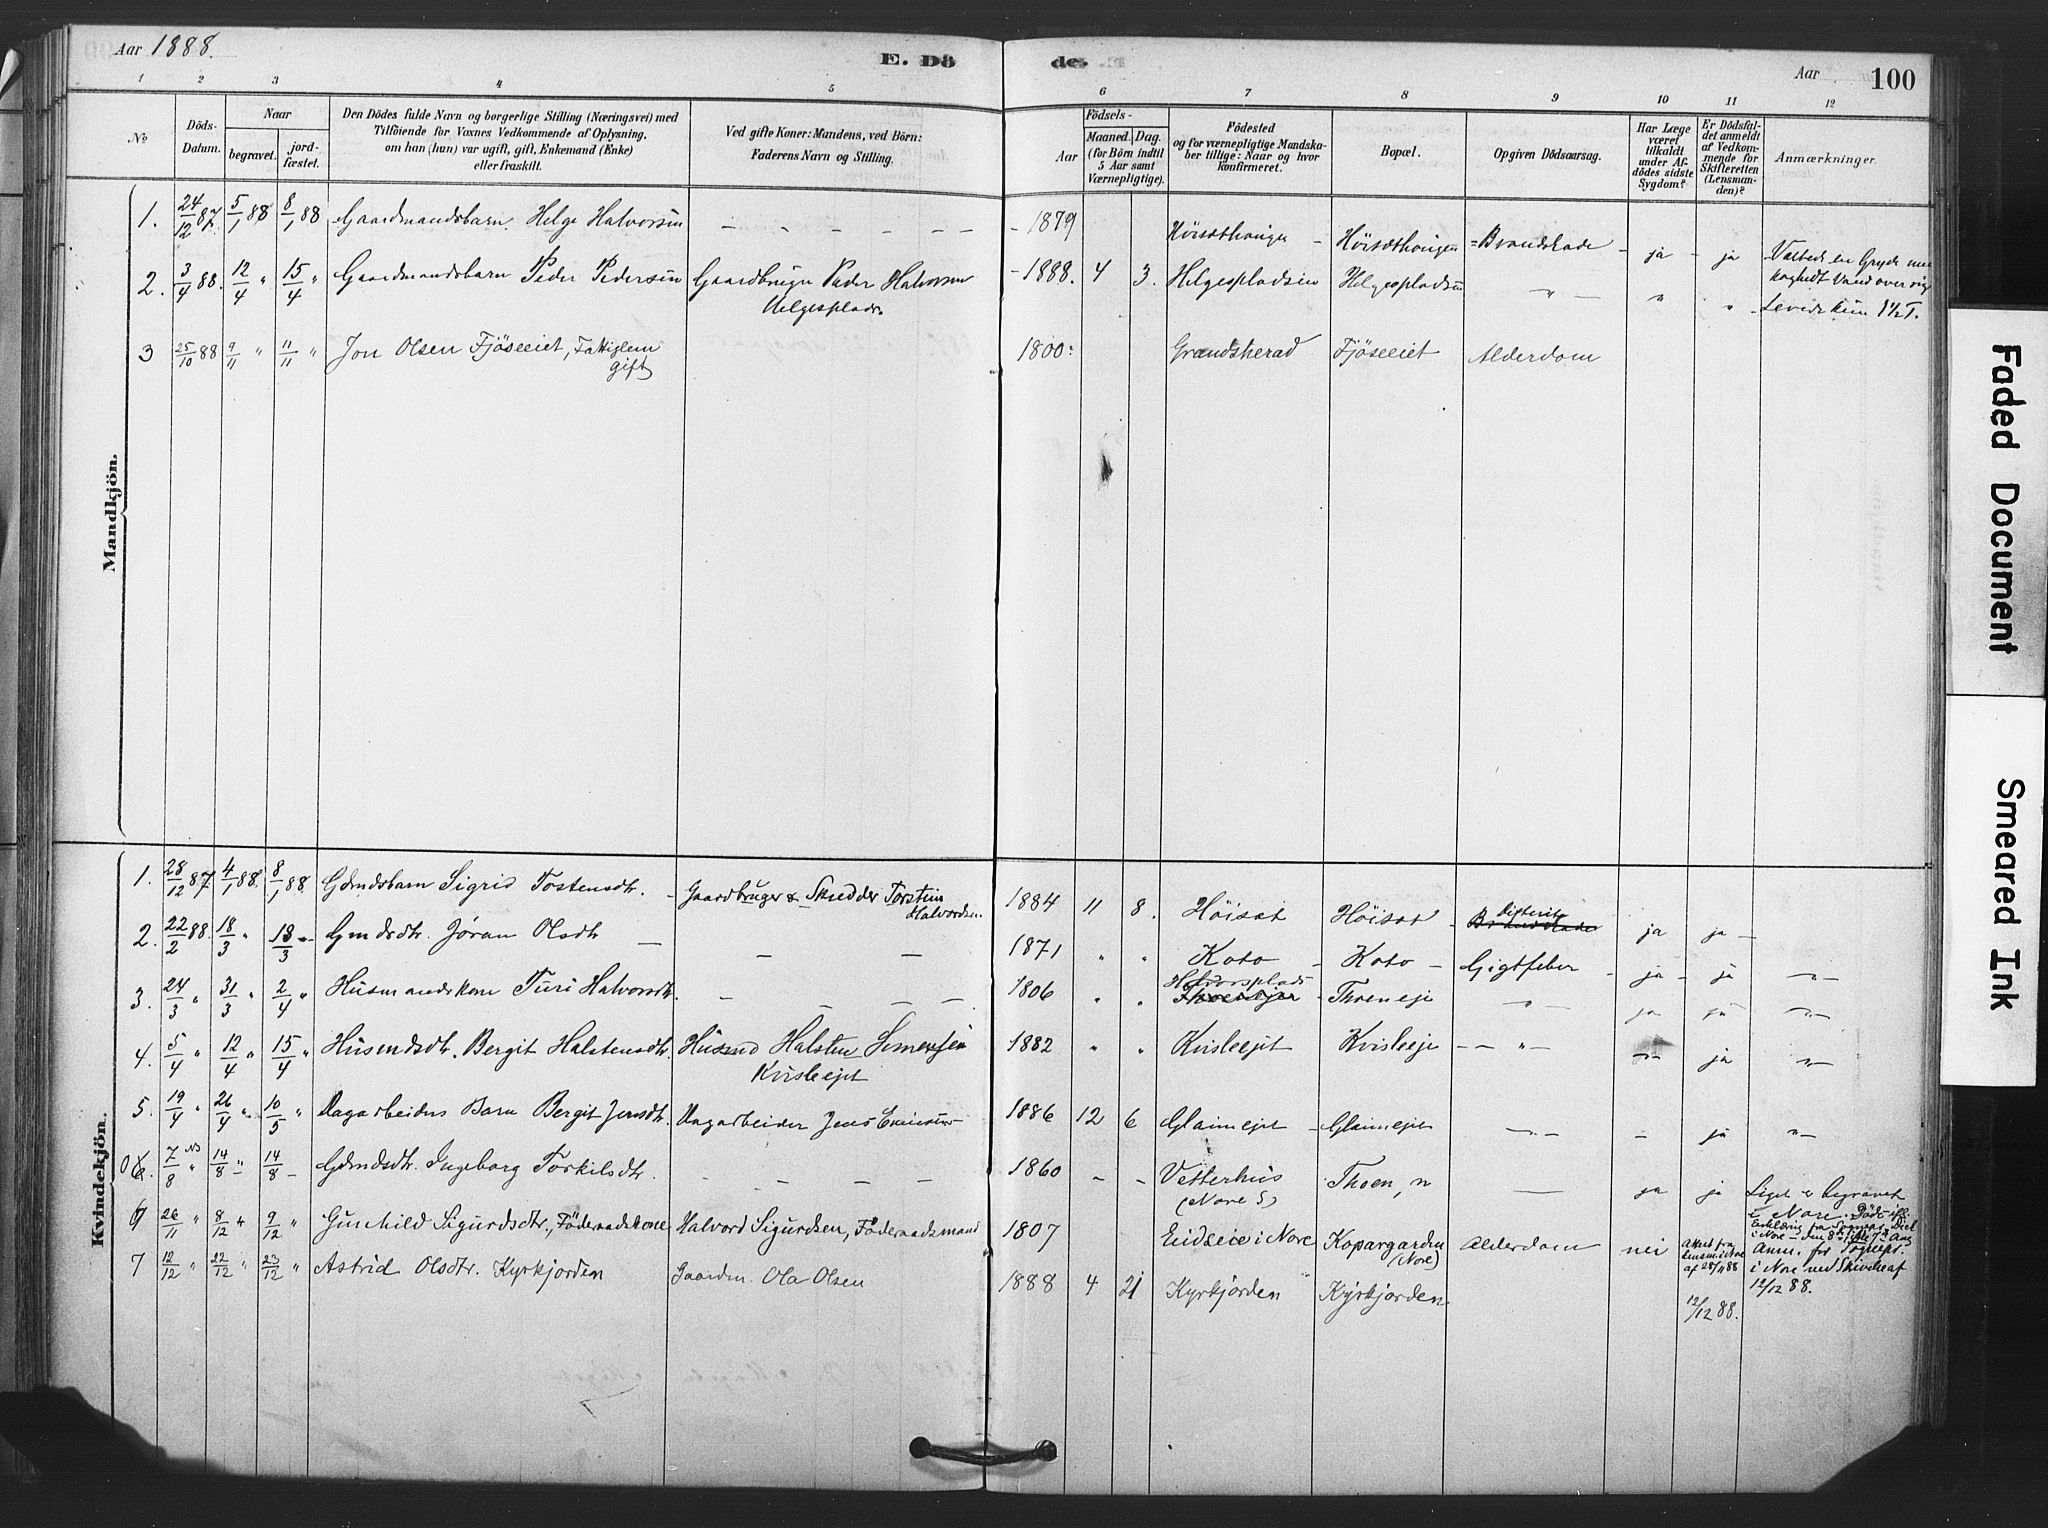 Aar 1888.
E. Dö
de.
Aar
100
1 2 3 4 5
6 7 8 9 10 11 12
No
Döds-
Datum.
Naar
begravet.
jord-
fæstet.
Den Dödes fulde Navn og borgerlige Stilling (Næringsvei) med
Tilföiende for Voxnes Vedkommende af Oplysning,
om han (hun) var ugift, gift, Enkemand (Enke)
eller fraskilt.
Ved gifte Koner: Mandens, ved Börn:
Faderens Navn og Stilling.
Födsels-
Aar
Maaned. Dag.
(for Börn indtil
5 Aar samt
Værnepligtige).
Födested
og for værnepligtige Mandska-
ber tillige: Naar og hvor
konfirmeret.
Bopæl.
Opgiven Dödsaarsag.
Har Læge
været
tilkaldt
under Af-
dödes sidste
Sygdom?
Er Dödsfal-
det anmeldt
af Vedkom-
mende for
Skifteretten
(Lensman-
den)?
Anmærkninger.
Mandkjön.
1. 24/12 87. 5/1 88 8/1 88 Gaardmandsbarn Helge Halvorsen - - - - - - 1879 - Brandskade - ja - ja Væltede en Gryde med
koghedt Vand over sig
2. 3/4 88. 12/4 " 15/4 " Gaardmandsbarn Peder Pedersen Gaardbruger Peder Halvorsen
Helgesplads. - 1888. 4 3. Helgespladsen Helgespladsen - " - " " Levede kun 1 1/2 T.
3 25/10 88 9/11 " 11/11 " Jon Olsen Fjöseeiet, Fattiglem
gift 1800: Grandsherad Fjöseeiet Alderdom
Kvindekjön.
1. 28/12 87 4/1 88. 8/1 88. Gdmdsbarn Sigrid Tostensdtr. - Gaardbruger & Skredder Torstein
Halvordsen. 1884 11 8. Höisat Höisat - Difterit
Brandskade ja ja -
2. 22/2 88. 18/3 " 18/3 " Gmdsdtr. Jøran Olsdtr - - - 1871 " " Koto - Koto - Gigtfeber - ja - ja "
3. 24/3 " 31/3 " 2/4 " Husmandskone Turi Halvorsdtr. - - - - 1806 " " Halvorsplads
Thoeneje - Thoeneje " ja ja "
4. 5/4 " 12/4 " 15/4 " Husmdsdtr. Bergit Halstensdtr. Husmd Halsten Simensen
Kvisleejet 1882 " " Kvisleejet Kvisleeje - - " - " ja "
5. 19/4 " 26/4 " 10/5 " Dagarbeiders Barn Bergit Jensdtr. Dagarbeider Jens 1886 12 6 Glaimejet - Glaimejet - " - - ja "
6. 7/8 " 14/8 " 14/8 - Gdmdsdtr. Ingeborg Torkilsdtr. - - - - 1860 - - Vetterhus
(Nore S) Thoen, n - ja ja Liget er begravet
i Nore.
6 26/11 " 8/12 " 9/12 " Gunhild Sigurdsdtr., Föderaadskone Halvord Sigurdsen, Föderaadsmand 1807 Eidseie i Nore Kopargarden
(Nore) Alderdom nei Attest fra
Lensm. i Nore
af 28/11 88 Anm. for Sognepr.
i Nore ved Skrivelse af
12/12 88.
7 12/12 " 22/12 " 23/12 " Astrid Olsdtr. Kyrkjorden Gaardm. Ola Olsen 1888 4 21 Kyrkjorden Kyrkjorden 12/12 88.
Faded Document
Smeared Ink